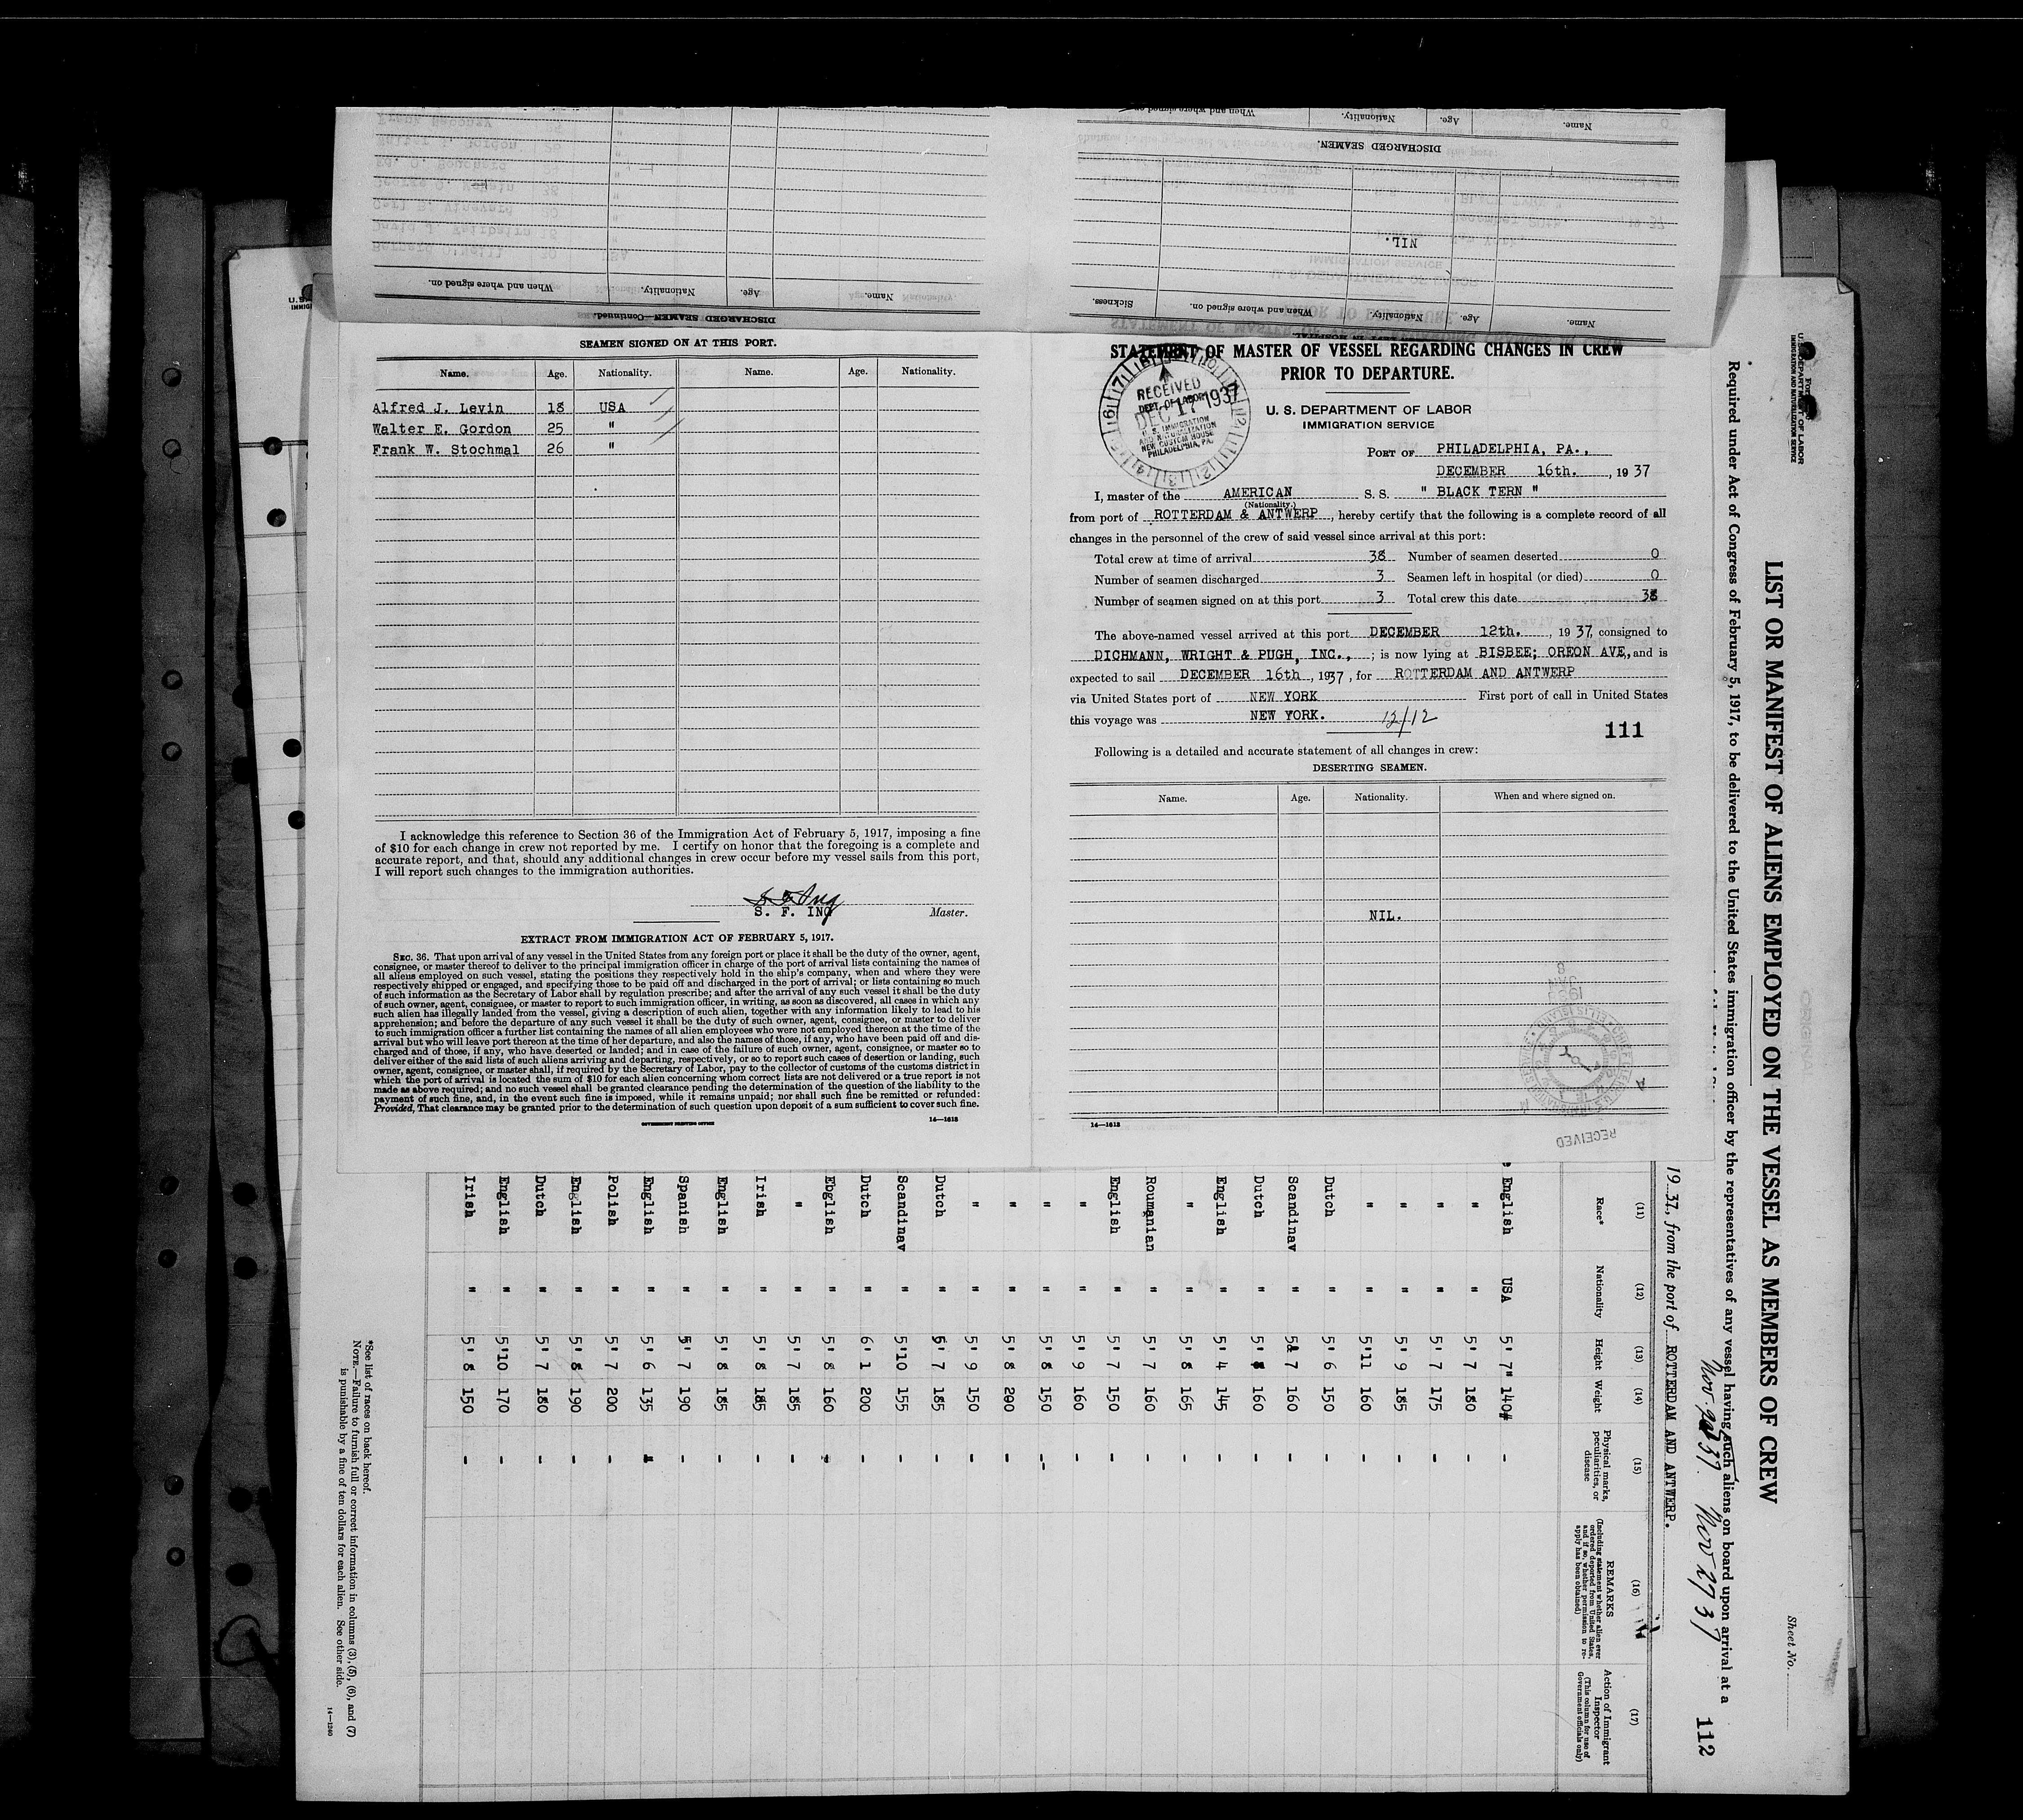 SEAMEN SIGNED ON AT THIS PORT.
Name. Age. Nationality. Name. Age. Nationality.
Alfred J. Levin 18 USA
Walter E. Gordon 25 "
Frank W. Stochmal 26 "
I acknowledge this reference to Section 36 of the Immigration Act of February 5, 1917, imposing a fine
of $10 for each change in crew not reported by me. I certify on honor that the foregoing is a complete and
accurate report, and that, should any additional changes in crew occur before my vessel sails from this port,
I will report such changes to the immigration authorities.
S. F. ING Master.
EXTRACT FROM IMMIGRATION ACT OF FEBRUARY 5, 1917.
SEC. 36. That upon arrival of any vessel in the United States from any foreign port or place it shall be the duty of the owner, agent,
consignee, or master thereof to deliver to the principal immigration officer in charge of the port of arrival lists containing the names of
all aliens employed on such vessel, stating the positions they respectively hold in the ship's company, when and where they were
respectively shipped or engaged, and specifying those to be paid off and discharged in the port of arrival; or lists containing so much
of such information as the Secretary of Labor shall by regulation prescribe; and after the arrival of any such vessel it shall be the duty
of such owner, agent, consignee, or master to report to such immigration officer, in writing, as soon as discovered, all cases in which any
such alien has illegally landed from the vessel, giving a description of such alien, together with any information likely to lead to his
apprehension; and before the departure of any such vessel it shall be the duty of such owner, agent, consignee, or master to deliver
to such immigration officer a further list containing the names of all alien employees who were not employed thereon at the time of the
arrival but who will leave port thereon at the time of her departure, and also the names of those, if any, who have been paid off and dis-
charged and of those, if any, who have deserted or landed; and in case of the failure of such owner, agent, consignee, or master so to
deliver either of the said lists of such aliens arriving and departing, respectively, or so to report such cases of desertion or landing, such
owner, agent, consignee, or master shall, if required by the Secretary of Labor, pay to the collector of customs of the customs district in
which the port of arrival is located the sum of $10 for each alien concerning whom correct lists are not delivered or a true report is not
made as above required; and no such vessel shall be granted clearance pending the determination of the question of the liability to the
payment of such fine, and, in the event such fine is imposed, while it remains unpaid; nor shall such fine be remitted or refunded:
Provided, That clearance may be granted prior to the determination of such question upon deposit of a sum sufficient to cover such fine.
GOVERNMENT PRINTING OFFICE 14—1613
STATEMENT OF MASTER OF VESSEL REGARDING CHANGES IN CREW
PRIOR TO DEPARTURE.
U. S. DEPARTMENT OF LABOR
IMMIGRATION SERVICE
RECEIVED
DEPT. OF LABOR
DEC 17 1937
U. S. IMMIGRATION
AND NATURALIZATION
NEW CUSTOM HOUSE
PHILADELPHIA, PA.
PORT OF PHILADELPHIA, PA.,
DECEMBER 16th. , 1937
I, master of the AMERICAN S. S. " BLACK TERN "
(Nationality.)
from port of ROTTERDAM & ANTWERP, hereby certify that the following is a complete record of all
changes in the personnel of the crew of said vessel since arrival at this port:
Total crew at time of arrival 38 Number of seamen deserted 0
Number of seamen discharged 3 Seamen left in hospital (or died) 0
Number of seamen signed on at this port 3 Total crew this date 38
The above-named vessel arrived at this port DECEMBER 12th. , 1937, consigned to
DICHMANN, WRIGHT & PUGH, INC., ; is now lying at BISBEE; OREON AVE, and is
expected to sail DECEMBER 16th , 1937, for ROTTERDAM AND ANTWERP
via United States port of NEW YORK First port of call in United States
this voyage was NEW YORK. 12/12
111
Following is a detailed and accurate statement of all changes in crew:
DESERTING SEAMEN.
Name. Age. Nationality. When and where signed on.
NIL.
14—1613
RECEIVED
DISCHARGED SEAMEN—Continued.
Name. Age. Nationality. When and where signed on.
DISCHARGED SEAMEN.
Name. Age. Nationality. When and where signed on.
Name. Age. Nationality. When and where signed on. Sickness.
NIL.
U. S. DEPARTMENT OF LABOR
IMMIGRATION AND NATURALIZATION SERVICE
Sheet No.
LIST OR MANIFEST OF ALIENS EMPLOYED ON THE VESSEL AS MEMBERS OF CREW
Required under Act of Congress of February 5, 1917, to be delivered to the United States immigration officer by the representatives of any vessel having such aliens on board upon arrival at a
112
1937, from the port of ROTTERDAM AND ANTWERP.
(11) (12) (13) (14) (15) (16) (17)
Race* Nationality Height Weight Physical marks, peculiarities, or disease REMARKS (Including statement whether alien ever ordered deported from United States, and if so, whether permission to re-apply has been obtained) Action of Immigrant Inspector (This column for use of Government officials only)
English USA 5' 7" 140# -
" " 5' 7 180 -
" " 5' 7 175 -
" " 5' 9 185 -
" " 5'11 160 -
Dutch " 5' 6 150 -
Scandinav " 7 160 -
Dutch " 5' 160 -
English " 5' 4 145 -
" " 5' 8 165 -
Roumanian " 5' 7 160 -
English " 5' 7 150 -
" " 5' 9 160 -
" " 5' 8 150 -
" " 5' 8 200 -
" " 5' 9 150 -
Dutch " 5' 7 185 -
Scandinav " 5'10 155 -
Dutch " 6' 1 200 -
Ebglish " 5' 8 160 -
" " 5' 7 185 -
Irish " 5' 8 185 -
English " 5' 8 185 -
Spanish " 5' 7 190 -
English " 5' 6 135 -
Polish " 5' 7 200 -
English " 5' 8 190 -
Dutch " 5' 7 180 -
English " 5'10 170 -
Irish " 5' 8 150 -
*See list of races on back hereof.
NOTE.—Failure to furnish full or correct information in columns (3), (5), (6), and (7)
is punishable by a fine of ten dollars for each alien. See other side.
14—1240